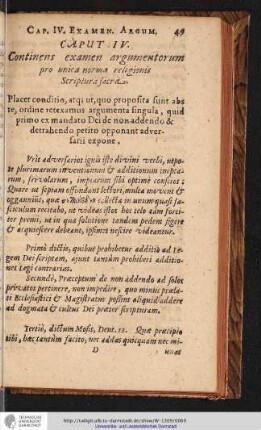 CAP. IV. EXAMEN. ARGUM. 49
CAPUT IV.
Continens examen argumentorum
pro unica norma religionis
Scriptura sacra.
Placet conditio, atq; ut, quo proposita sunt abs
te, ordine retexamus argumenta singula, quid
primo ex mandato Dei de non addendo &
detrahendo petito opponant adver-
sarii expone.
Urit adversarios ignis iste divini verbi, utpo-
te plurimarum inventionum & additionum impia-
rum, sibi optimè conscios;
Quare ut sæpiam effundant
& in unum quasi fa-
sciculum rediacto, ut videas istos hoc telo tam forti-
ter premi, ut in qua solutione tandem pedem figere
& acquiescere debeant, ipsimet nescire videantur.
Primò dictis, quibus prohibetur additio ad Le-
gem Dei scriptam, ajunt tantùm prohiberi additio-
nes Legi contrarias.
Secundò, Præceptum de non addendo ad solos
privatos pertinere, non impedire, quo minùs præla-
ti Ecclesiastici & Magistratus possint aliquid addere
ad dogmata & cultus Dei præter scripturam.
Tertiò, dictum Mosis, Deut. 12. Quæ præcipio
tibi, hæc tantùm facito, nec addas quicquam nec mi-
D nuas
http://tudigit.ulb.tu-darmstadt.de/show/W-1309/0069
Universitäts- und Landesbibliothek Darmstadt